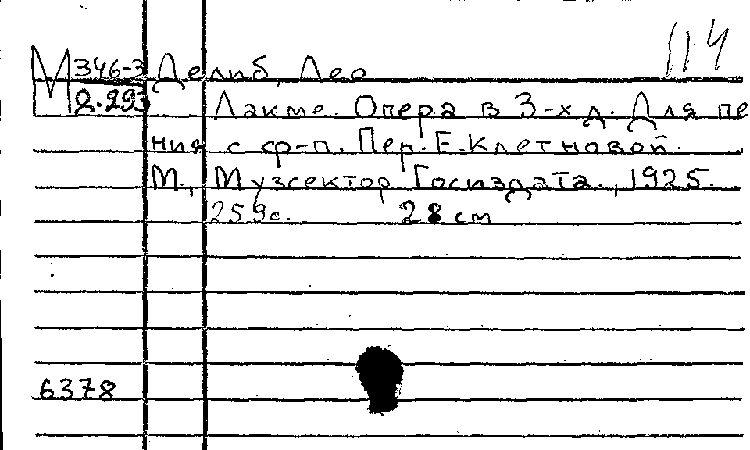 114
М 346-3 Делиб, Лео
2.293 Лакме. Опера в 3-х д. Для пе
ния с ф-п. Пер. Е. Клетновой.
М., Музсектор Госиздата., 1925.
259с. 28 см
6378